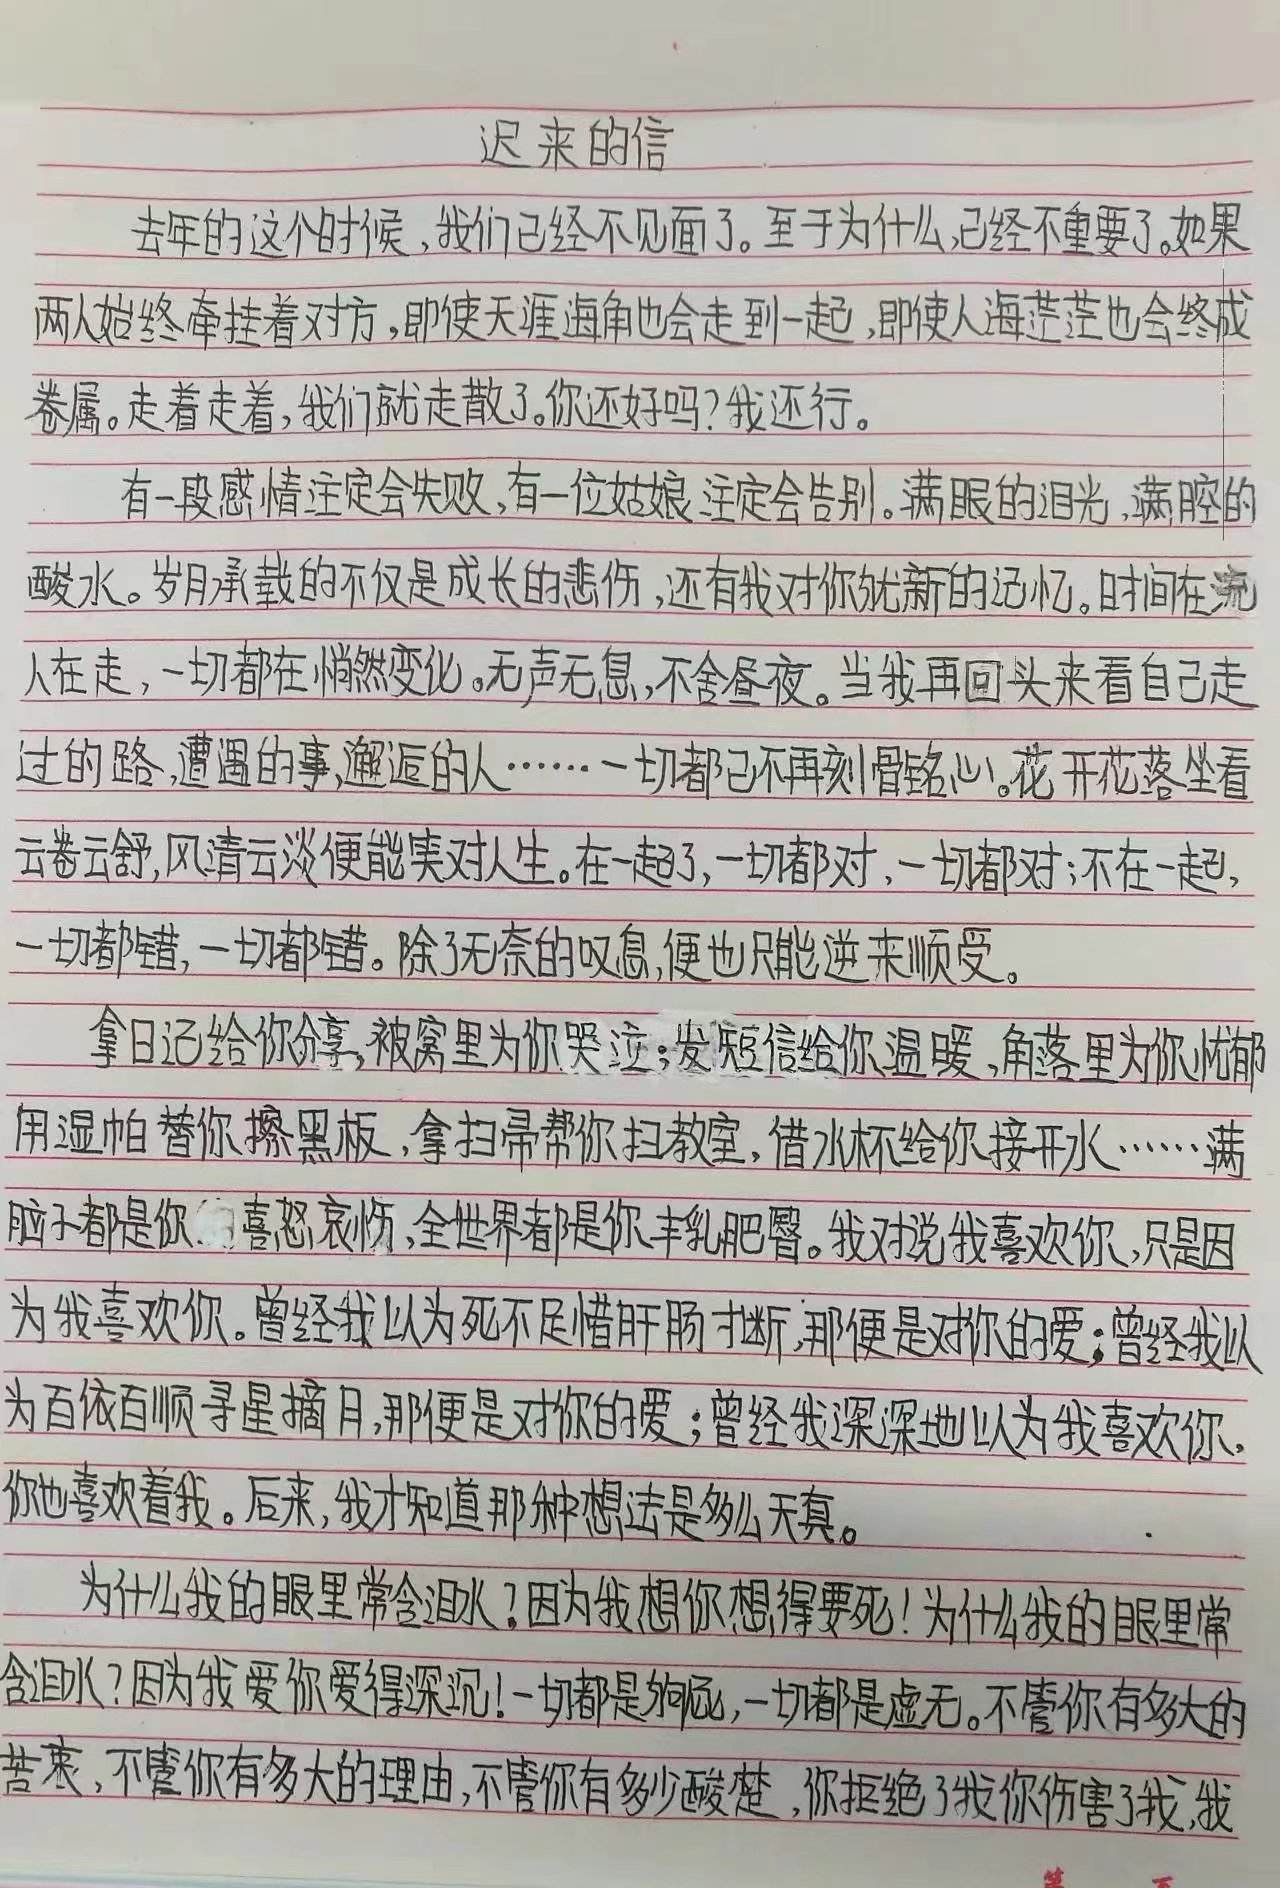 迟来的信
去年的这个时候，我们已经不见面了。至于为什么，已经不重要了。如果
两人始终牵挂着对方，即使天涯海角也会走到一起，即使人海茫茫也会终成
眷属。走着走着，我们就走散了。你还好吗？我还行。
有一段感情注定会失败，有一位姑娘注定会告别。满眼的泪光，满腔的
酸水。岁月承载的不仅是成长的悲伤，还有我对你就新的记忆。时间在流
人在走，一切都在悄然变化。无声无息，不舍昼夜。当我再回头来看自己走
过的路，遭遇的事，邂逅的人……一切都已不再刻骨铭心。花开花落坐看
云卷云舒，风清云淡便能笑对人生。在一起了，一切都对，一切都对；不在一起，
一切都错，一切都错。除了无奈的叹息，便也只能逆来顺受。
拿日记给你分享，被窝里为你哭泣；发短信给你温暖，角落里为你忧郁
用湿帕替你擦黑板，拿扫帚帮你扫教室，借水杯给你接开水……满
脑子都是你 喜怒哀伤，全世界都是你丰乳肥臀。我对说我喜欢你，只是因
为我喜欢你。曾经我以为死不足惜肝肠寸断，那便是对你的爱；曾经我以
为百依百顺寻星摘月，那便是对你的爱；曾经我深深地以为我喜欢你，
你也喜欢着我。后来，我才知道那种想法是多么天真。
为什么我的眼里常含泪水？因为我想你想得要死！为什么我的眼里常
含泪水？因为我爱你爱得深沉！一切都是狗屁，一切都是虚无。不管你有多大的
苦衷，不管你有多大的理由，不管你有多少酸楚，你拒绝了我你伤害了我，我